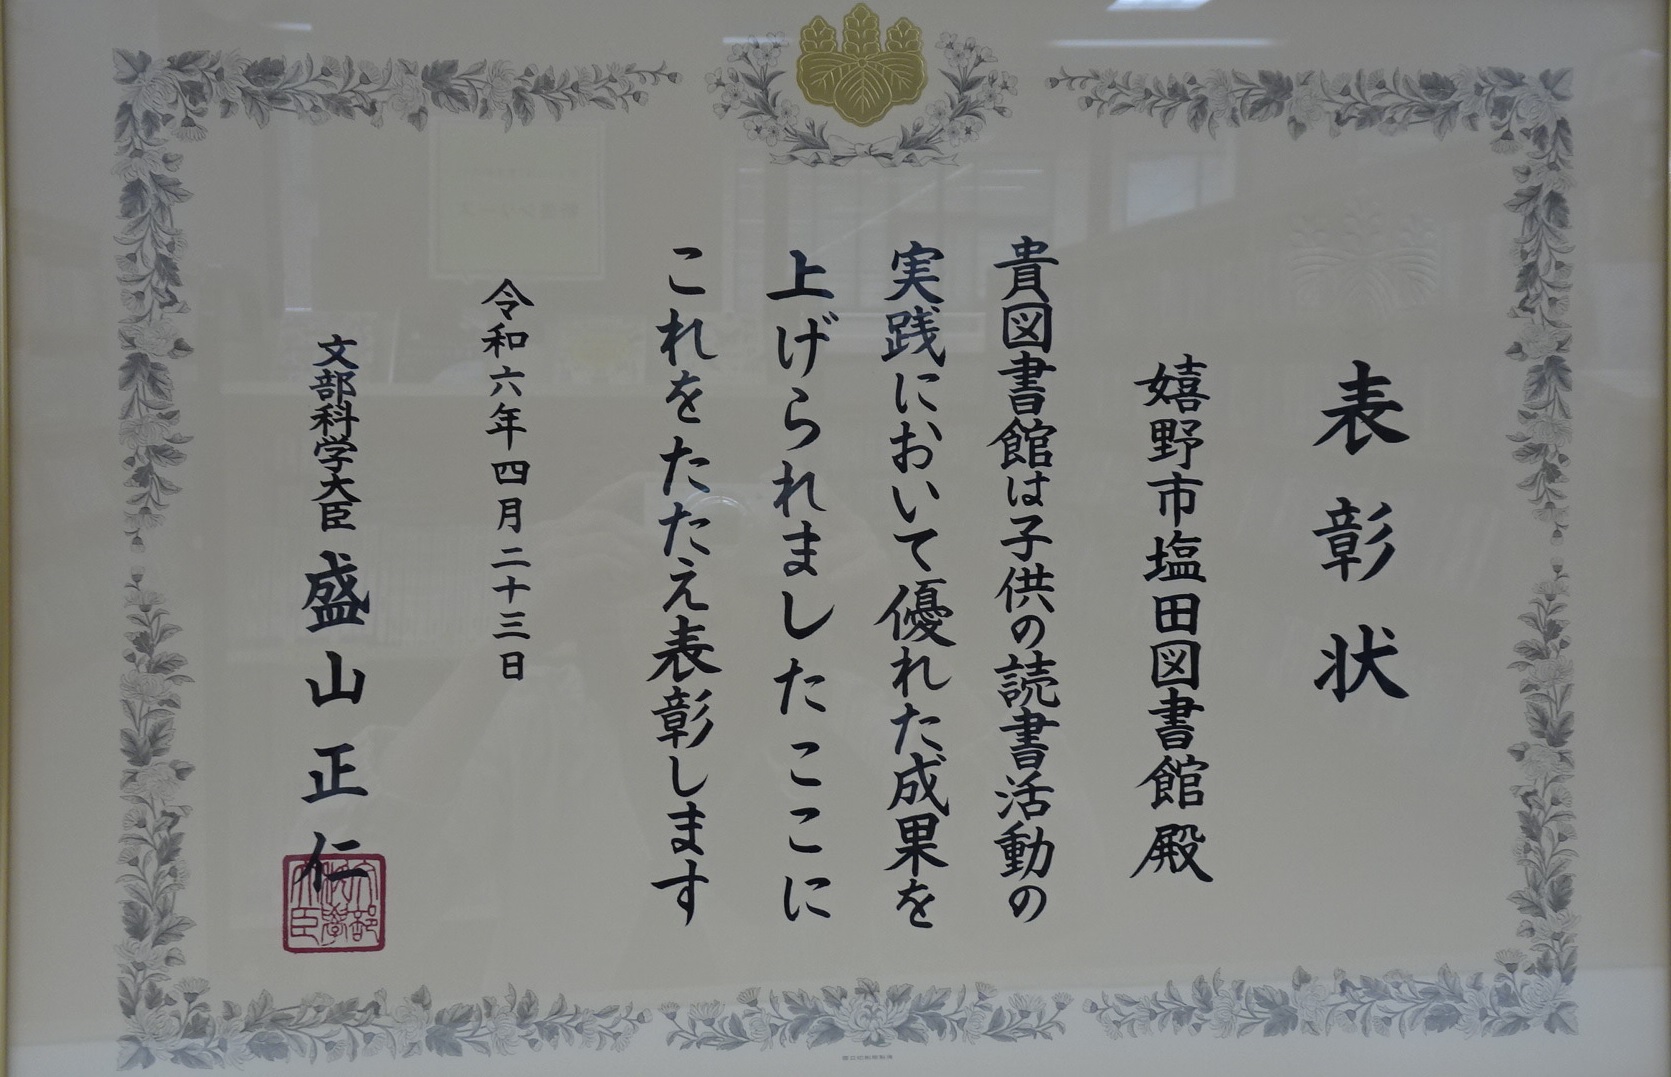 表彰状
嬉野市塩田図書館殿
貴図書館は子供の読書活動の
実践において優れた成果を
上げられましたここに
これをたたえ表彰します
令和六年四月二十三日
文部科学大臣 盛山正仁